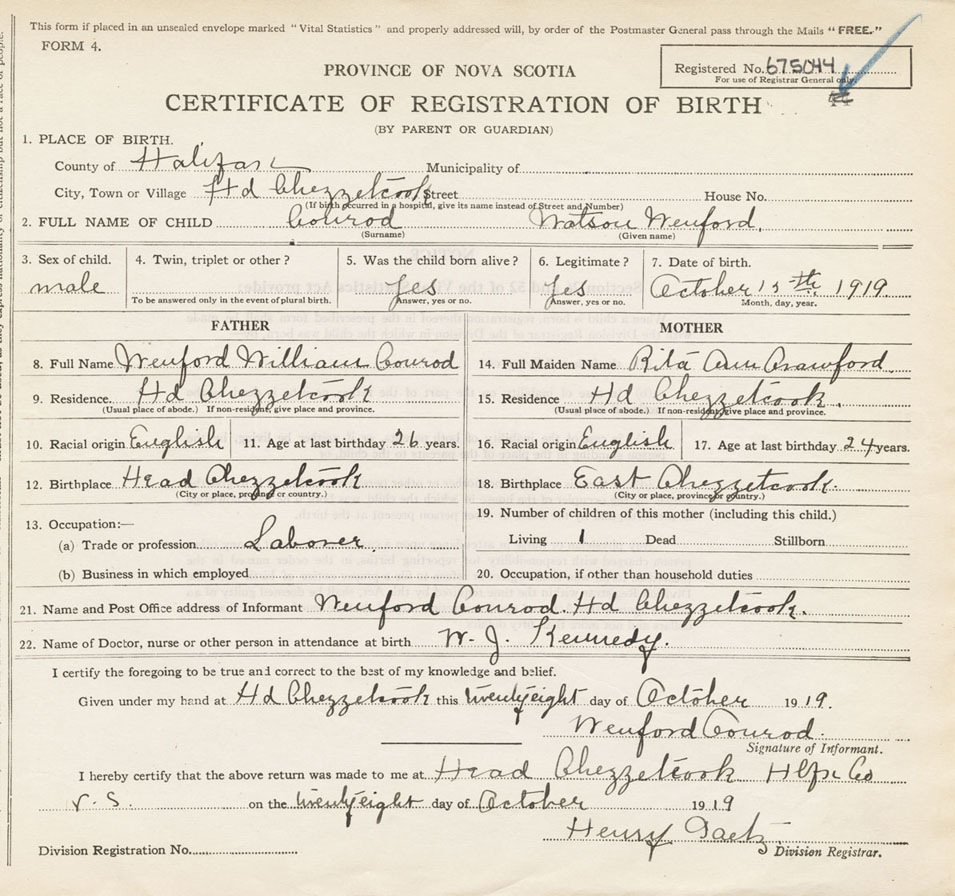 This form if placed in an unsealed envelope marked "Vital Statistics" and properly addressed will, by order of the Postmaster General pass through the Mails "FREE."
FORM 4.
Registered No. 675044
For use of Registrar General only.
PROVINCE OF NOVA SCOTIA
CERTIFICATE OF REGISTRATION OF BIRTH
(BY PARENT OR GUARDIAN)
1. PLACE OF BIRTH.
County of Halifax Municipality of
City, Town or Village Hd Chezzetcook Street House No.
(If birth occurred in a hospital, give its name instead of Street and Number)
2. FULL NAME OF CHILD Conrod Watson Wenford.
(Surname) (Given name)
3. Sex of child. 4. Twin, triplet or other? 5. Was the child born alive? 6. Legitimate? 7. Date of birth.
male Yes Yes October 15th 1919
To be answered only in the event of plural birth. Answer, yes or no. Answer, yes or no. Month, day, year.
FATHER MOTHER
8. Full Name Wenford William Conrod 14. Full Maiden Name Rita Ann Crawford
9. Residence. Hd Chezzetcook 15. Residence Hd Chezzetcook.
(Usual place of abode.) If non-resident, give place and province. (Usual place of abode.) If non-resident, give place and province.
10. Racial origin English 11. Age at last birthday 26 years. 16. Racial origin English 17. Age at last birthday 24 years.
12. Birthplace Head Chezzetcook 18. Birthplace East Chezzetcook.
(City or place, province or country.) (City or place, province or country.)
13. Occupation:— 19. Number of children of this mother (including this child.)
(a) Trade or profession Laborer. Living 1 Dead Stillborn
(b) Business in which employed 20. Occupation, if other than household duties
21. Name and Post Office address of Informant Wenford Conrod. Hd Chezzetcook.
22. Name of Doctor, nurse or other person in attendance at birth W. J. Kennedy.
I certify the foregoing to be true and correct to the best of my knowledge and belief.
Given under my hand at Hd Chezzetcook this twentyeight day of October 1919.
Wenford Conrod.
Signature of Informant.
I hereby certify that the above return was made to me at Head Chezzetcook Hlfx Co
N.S. on the twentyeight day of October 1919
Henry Gaetz
Division Registration No. Division Registrar.